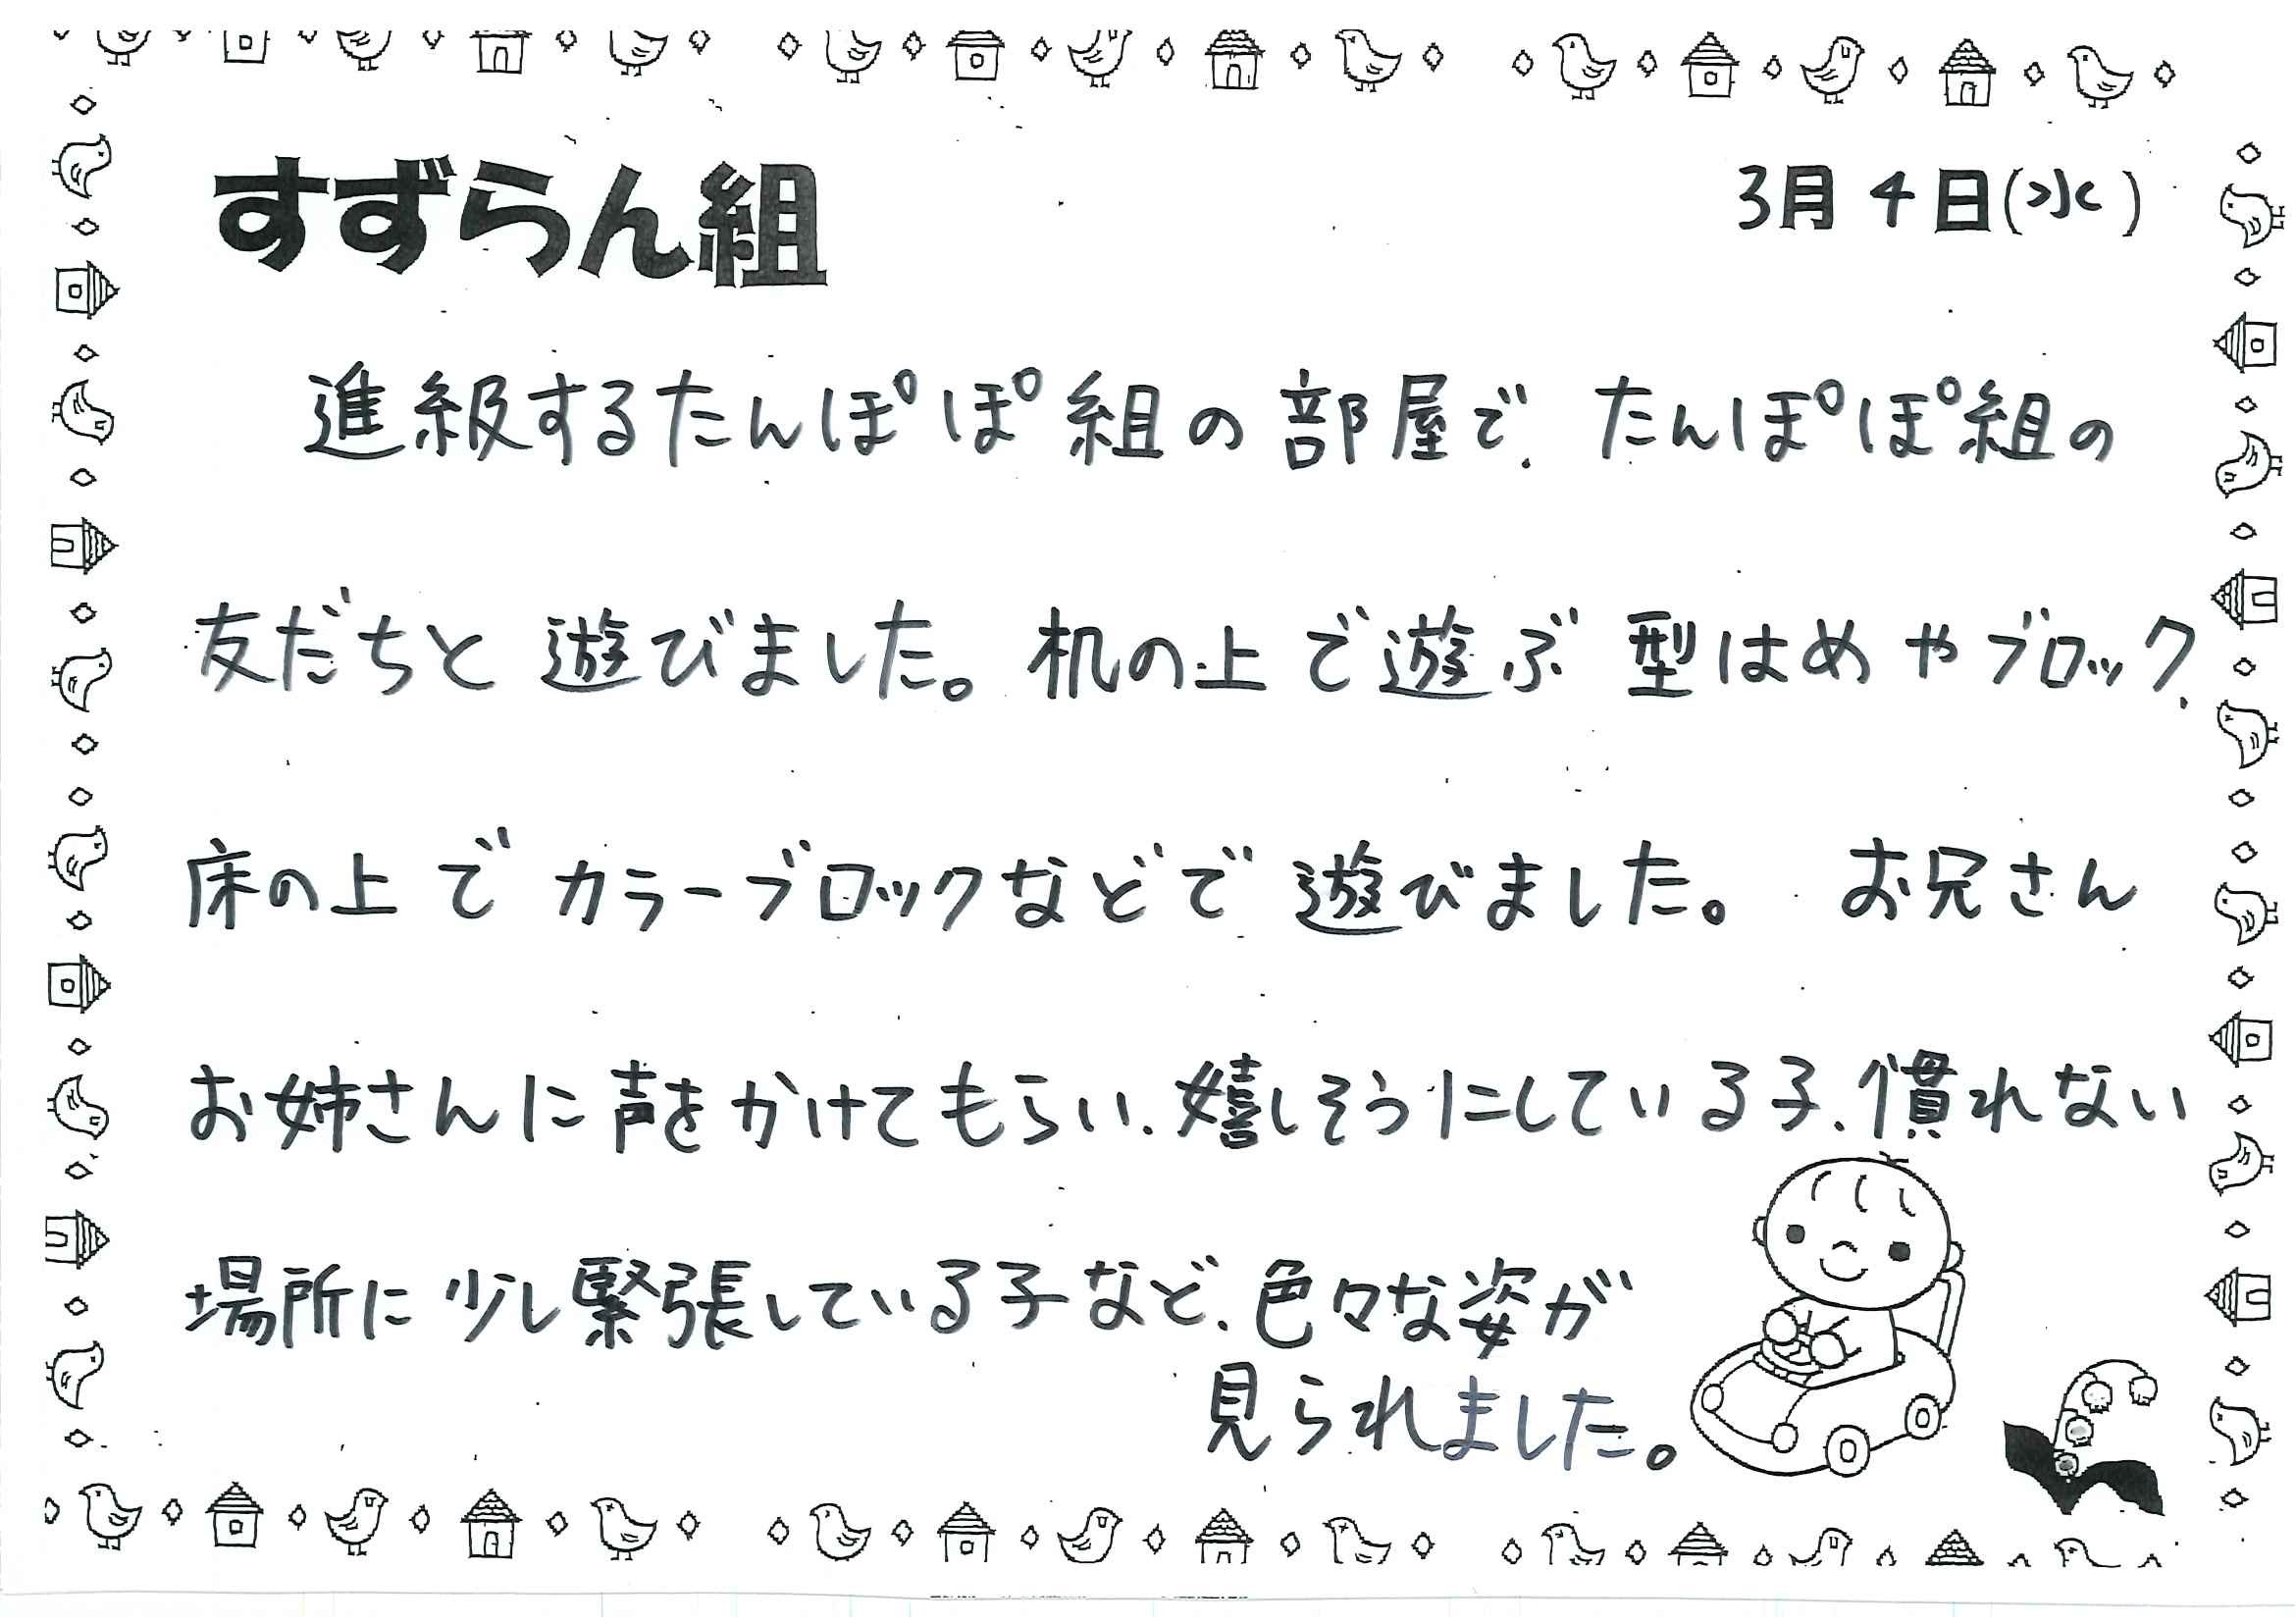 すずらん組
3月4日(水)
進級するたんぽぽ組の部屋で、たんぽぽ組の
友だちと遊びました。机の上で遊ぶ型はめやブロック、
床の上でカラーブロックなどで遊びました。お兄さん
お姉さんに声をかけてもらい、嬉しそうにしている子、慣れない
場所に少し緊張している子など、色々な姿が
見られました。